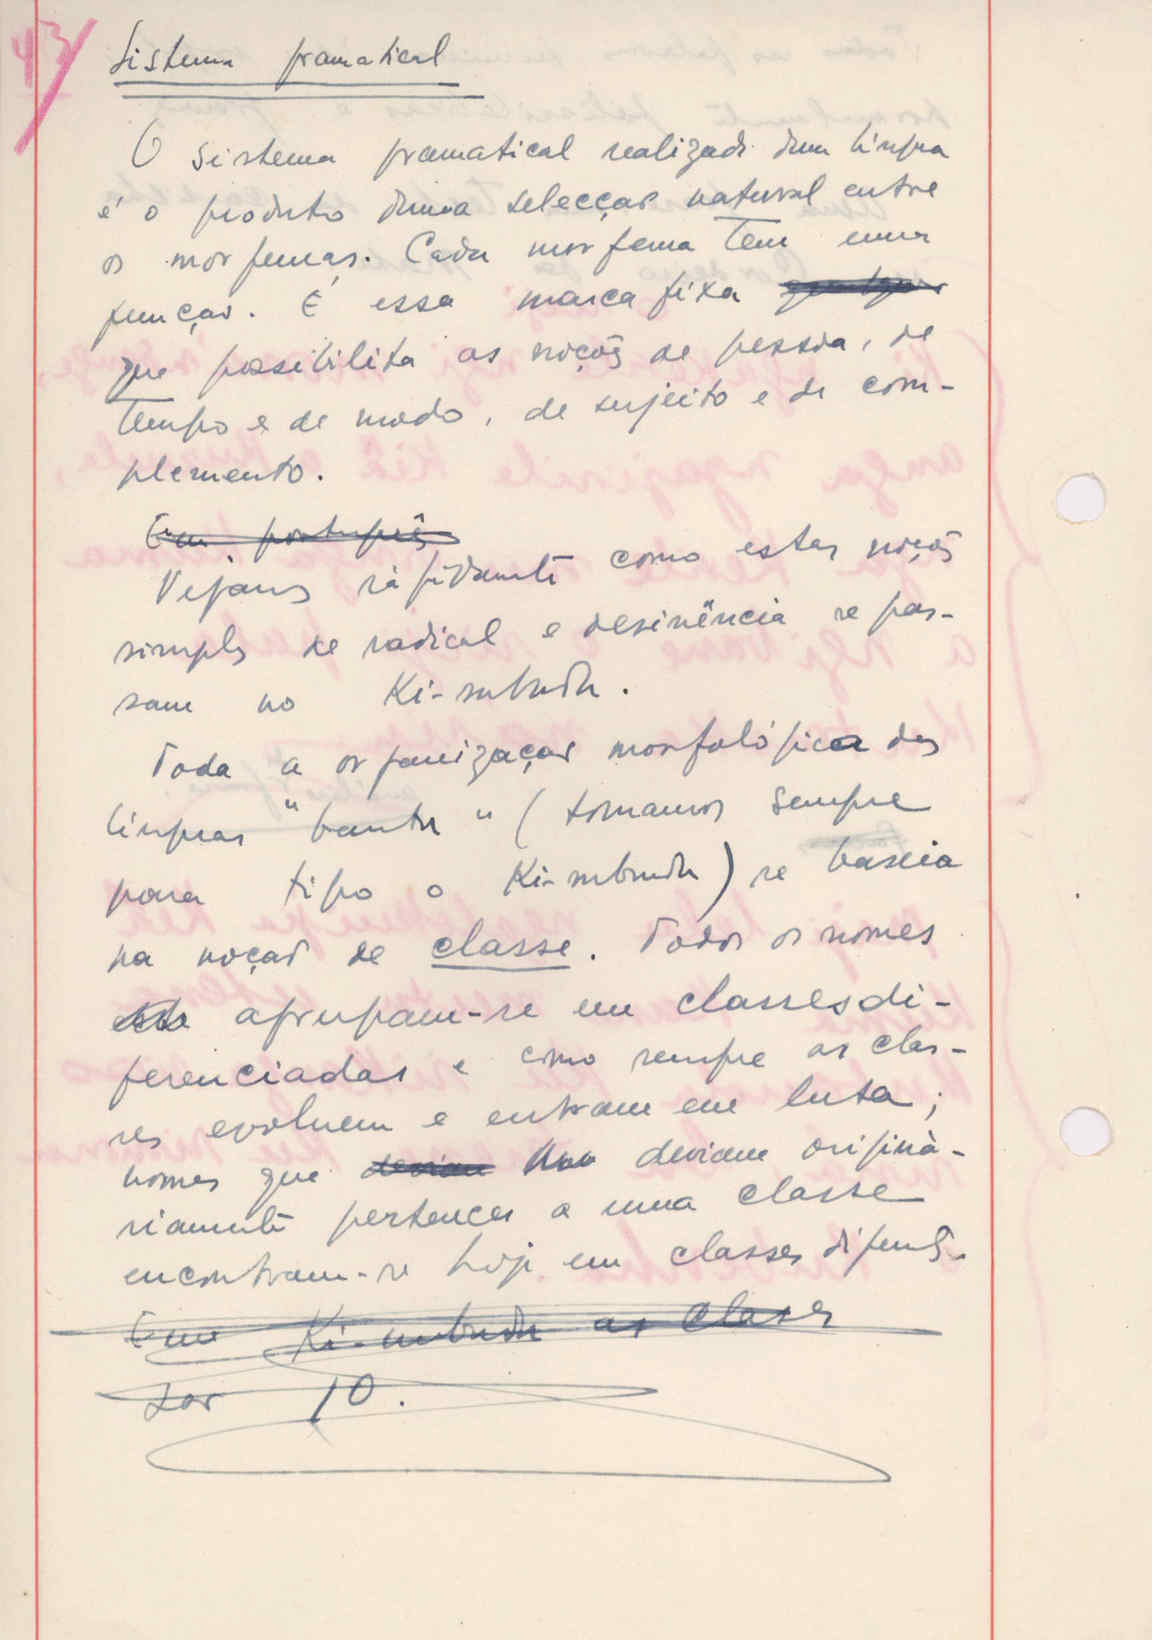 43
Sistema gramatical
O sistema gramatical realizado duma língua
é o produto duma selecção natural entre
os morfemas. Cada morfema tem uma
função. É essa marca fixa
que possibilita as noções de pessoa, de
tempo e de modo, de sujeito e de com-
plemento.
Em português
Vejamos ràpidamente como estas noções
simples de radical e desinência se pas-
sam no Ki-mbundu.
Toda a organização morfológica das
línguas "bantu" (tomamos sempre
para tipo o Ki-mbundu) se baseia
na noção de classe. Todos os nomes
agrupam-se em classes di-
ferenciadas e como sempre as clas-
ses evoluem e entram em luta;
nomes que deviam deviam originà-
riamente pertencer a uma classe
encontram-se hoje em classes diferentes.
Em Ki-mbundu as classes
são 10.